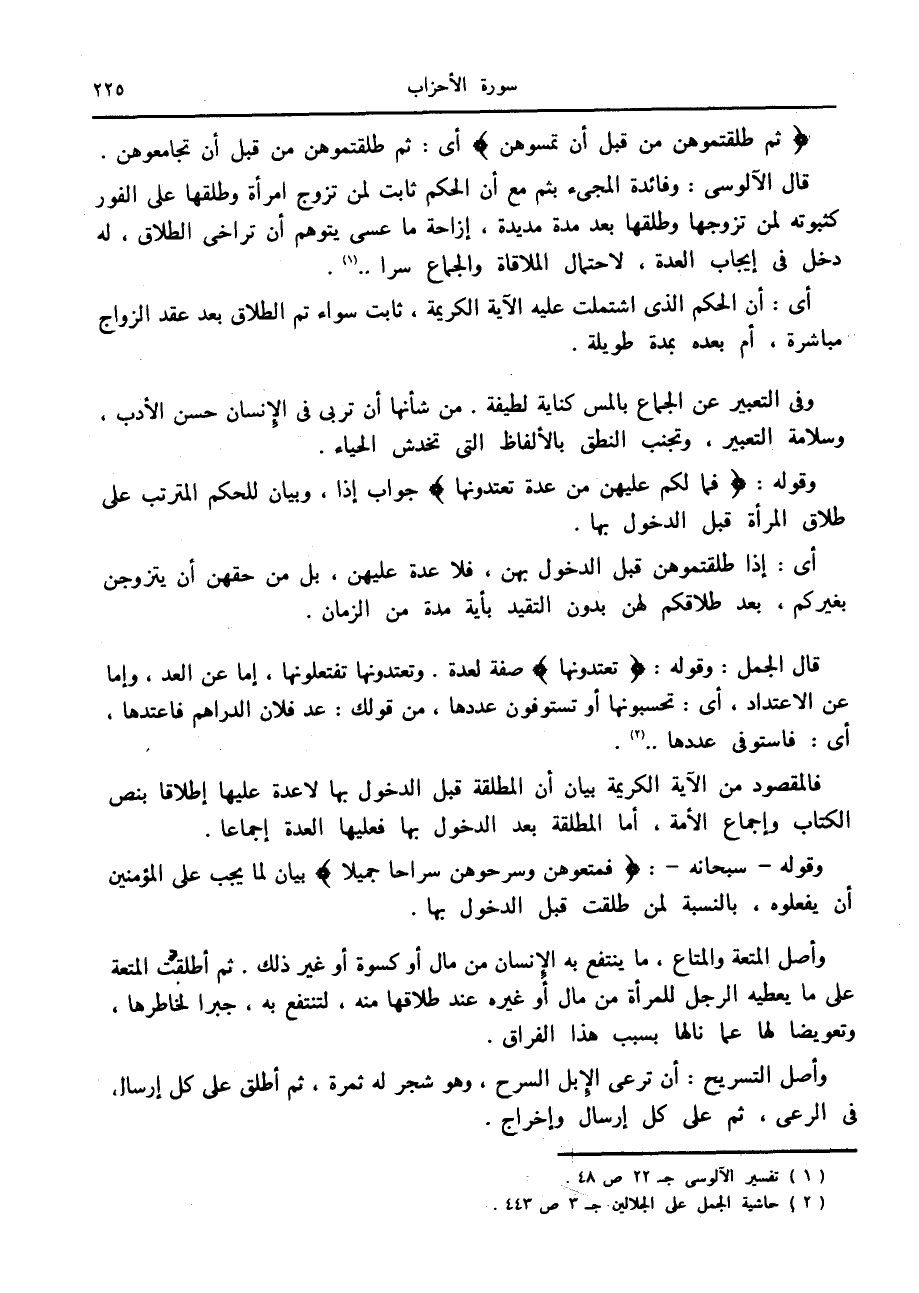 سورة الأحزاب ٢٢٥
﴿ ثم طلقتموهن من قبل أن تمسوهن ﴾ أى : ثم طلقتموهن من قبل أن تجامعوهن .
قال الآلوسى : وفائدة المجىء بثم مع أن الحكم ثابت لمن تزوج امرأة وطلقها على الفور
كثبوته لمن تزوجها وطلقها بعد مدة مديدة ، إزاحة ما عسى يتوهم أن تراخى الطلاق ، له
دخل فى إيجاب العدة ، لاحتمال الملاقاة والجماع سرا ..(١) .
أى : أن الحكم الذى اشتملت عليه الآية الكريمة ، ثابت سواء تم الطلاق بعد عقد الزواج
مباشرة ، أم بعده بمدة طويلة .
وفى التعبير عن الجماع بالمس كناية لطيفة . من شأنها أن تربى فى الإنسان حسن الأدب ،
وسلامة التعبير ، وتجنب النطق بالألفاظ التى تخدش الحياء .
وقوله : ﴿ فما لكم عليهن من عدة تعتدونها ﴾ جواب إذا ، وبيان للحكم المترتب على
طلاق المرأة قبل الدخول بها .
أى : إذا طلقتموهن قبل الدخول بهن ، فلا عدة عليهن ، بل من حقهن أن يتزوجن
بغيركم ، بعد طلاقكم لهن بدون التقيد بأية مدة من الزمان .
قال الجمل : وقوله : ﴿ تعتدونها ﴾ صفة لعدة . وتعتدونها تفتعلونها ، إما عن العد ، وإما
عن الاعتداد ، أى : تحسبونها أو تستوفون عددها ، من قولك : عد فلان الدراهم فاعتدها ،
أى : فاستوفى عددها ..(٢) .
فالمقصود من الآية الكريمة بيان أن المطلقة قبل الدخول بها لاعدة عليها إطلاقا بنص
الكتاب وإجماع الأمة ، أما المطلقة بعد الدخول بها فعليها العدة إجماعا .
وقوله - سبحانه - : ﴿ فمتعوهن وسرحوهن سراحا جميلا ﴾ بيان لما يجب على المؤمنين
أن يفعلوه ، بالنسبة لمن طلقت قبل الدخول بها .
وأصل المتعة والمتاع ، ما ينتفع به الإنسان من مال أو كسوة أو غير ذلك . ثم أطلقت المتعة
على ما يعطيه الرجل للمرأة من مال أو غيره عند طلاقها منه ، لتنتفع به ، جبرا لخاطرها ،
وتعويضا لها عما نالها بسبب هذا الفراق .
وأصل التسريح : أن ترعى الإبل السرح ، وهو شجر له ثمرة ، ثم أطلق على كل إرسال
فى الرعى ، ثم على كل إرسال وإخراج .
( ١ ) تفسير الآلوسى جـ ٢٢ ص ٤٨ .
( ٢ ) حاشية الجمل على الجلالين جـ ٣ ص ٤٤٣ .